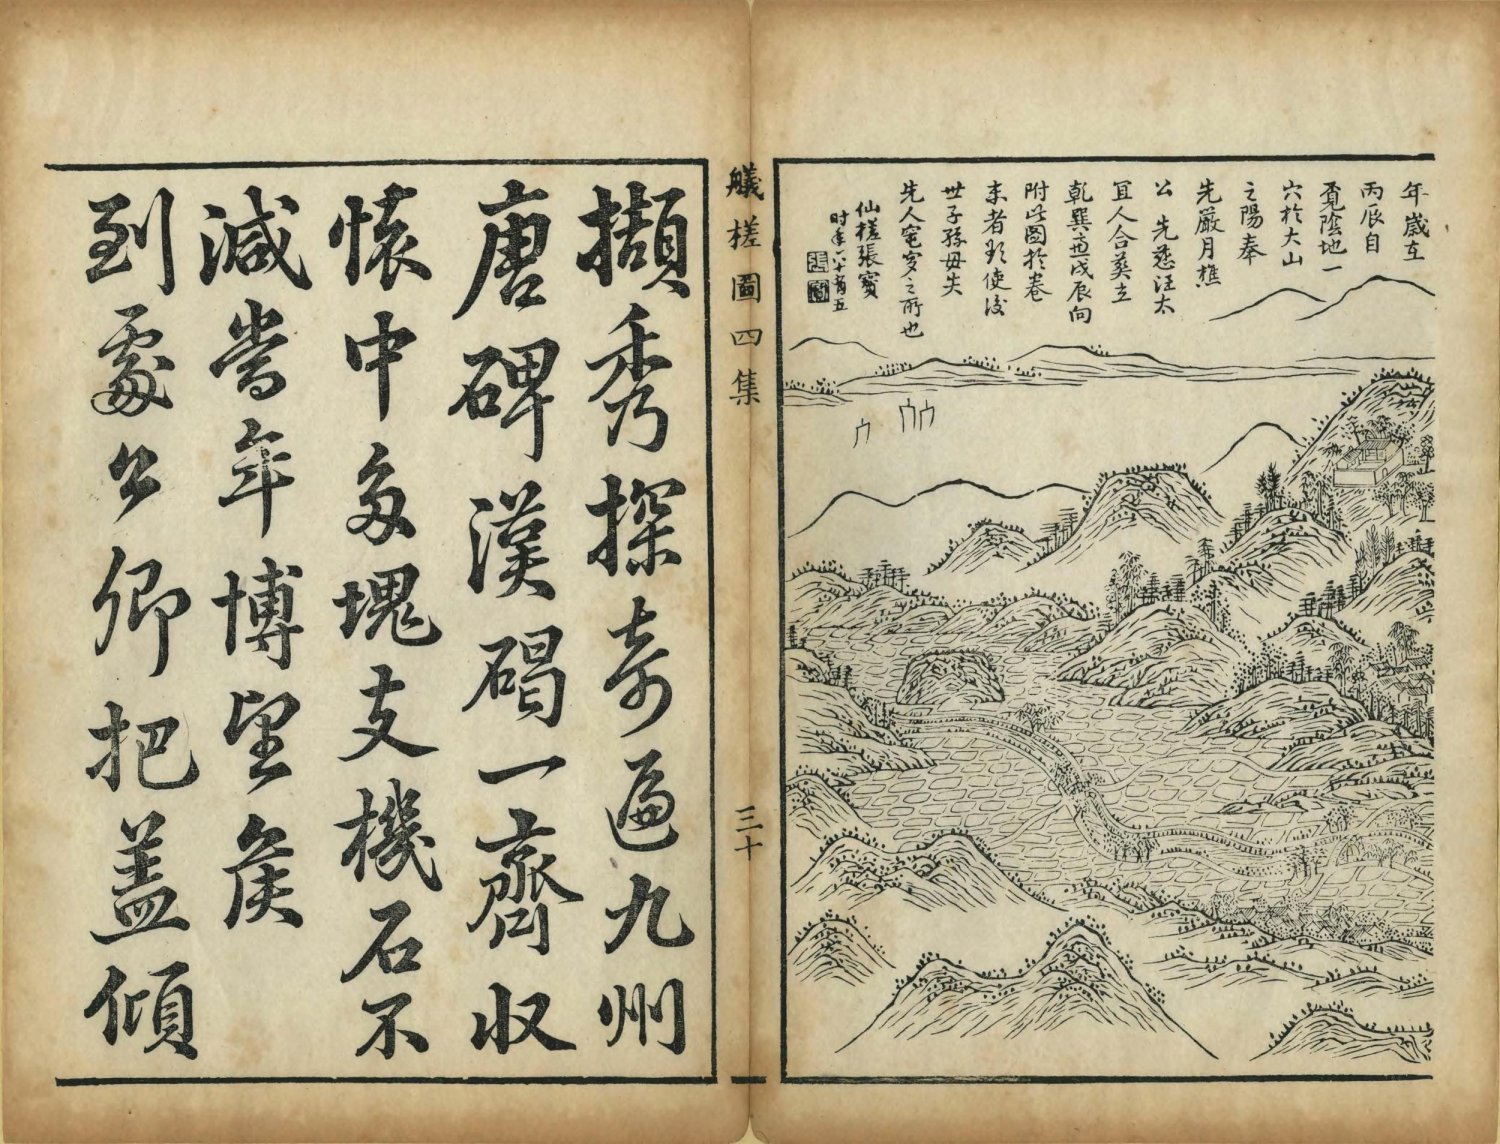 年歲在
丙辰自
覓陰地一
穴於大山
之陽奉
先嚴月樵
公先慈汪太
宜人合葬立
乾巽兼戌辰向
附此圖於卷
末者欲使後
世子孫毋失
先人窀穸之所也
仙槎張寶
時年六十有五
艤槎圖四集
三十
擷秀探奇遍九州
唐碑漢碣一齊收
懷中多塊支機石不
減當年博望侯
到處公卿把蓋傾